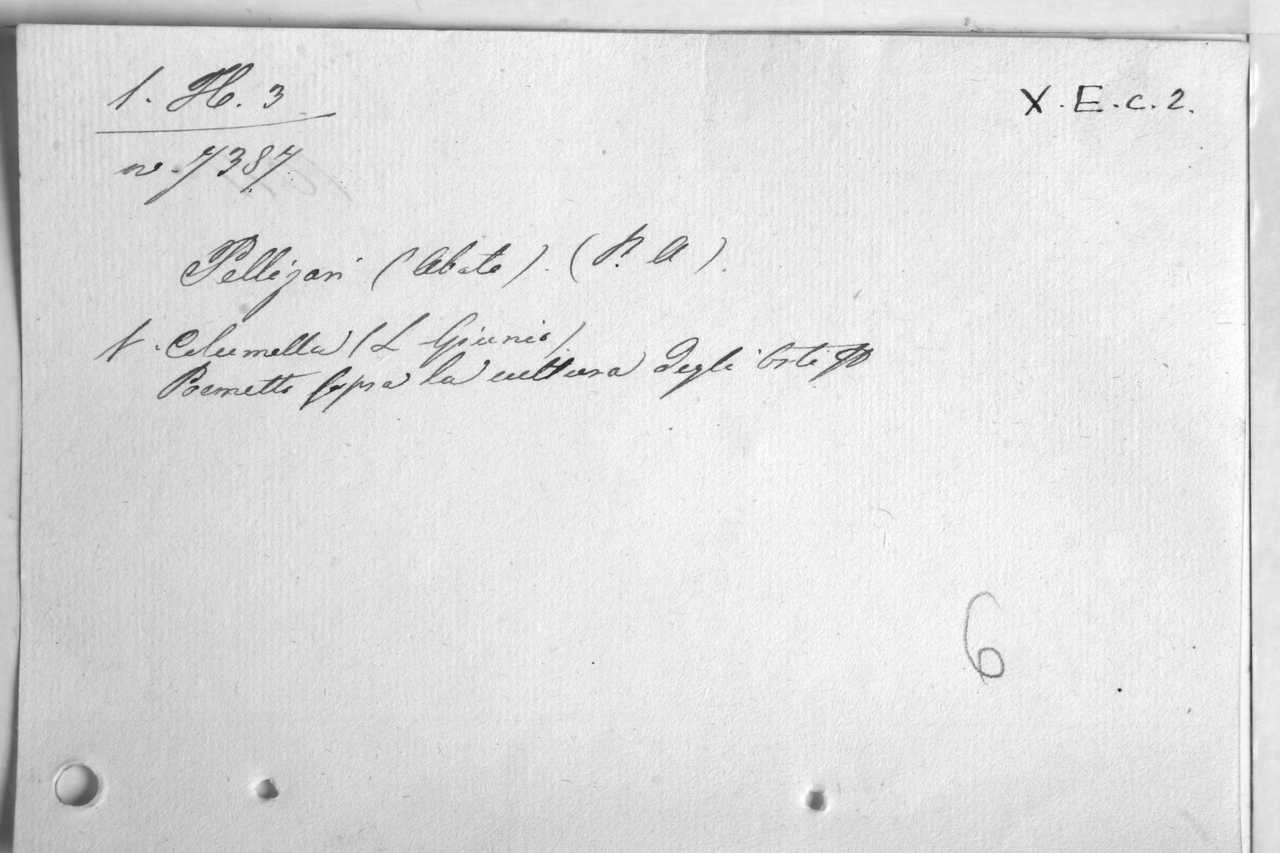 1. H. 3
X.E.c.2.
no. 7387.
Pellizari (Abate). (P. A).
V. Columella (L Giunio).
Poemetto sopra la cultura degli Orti
6